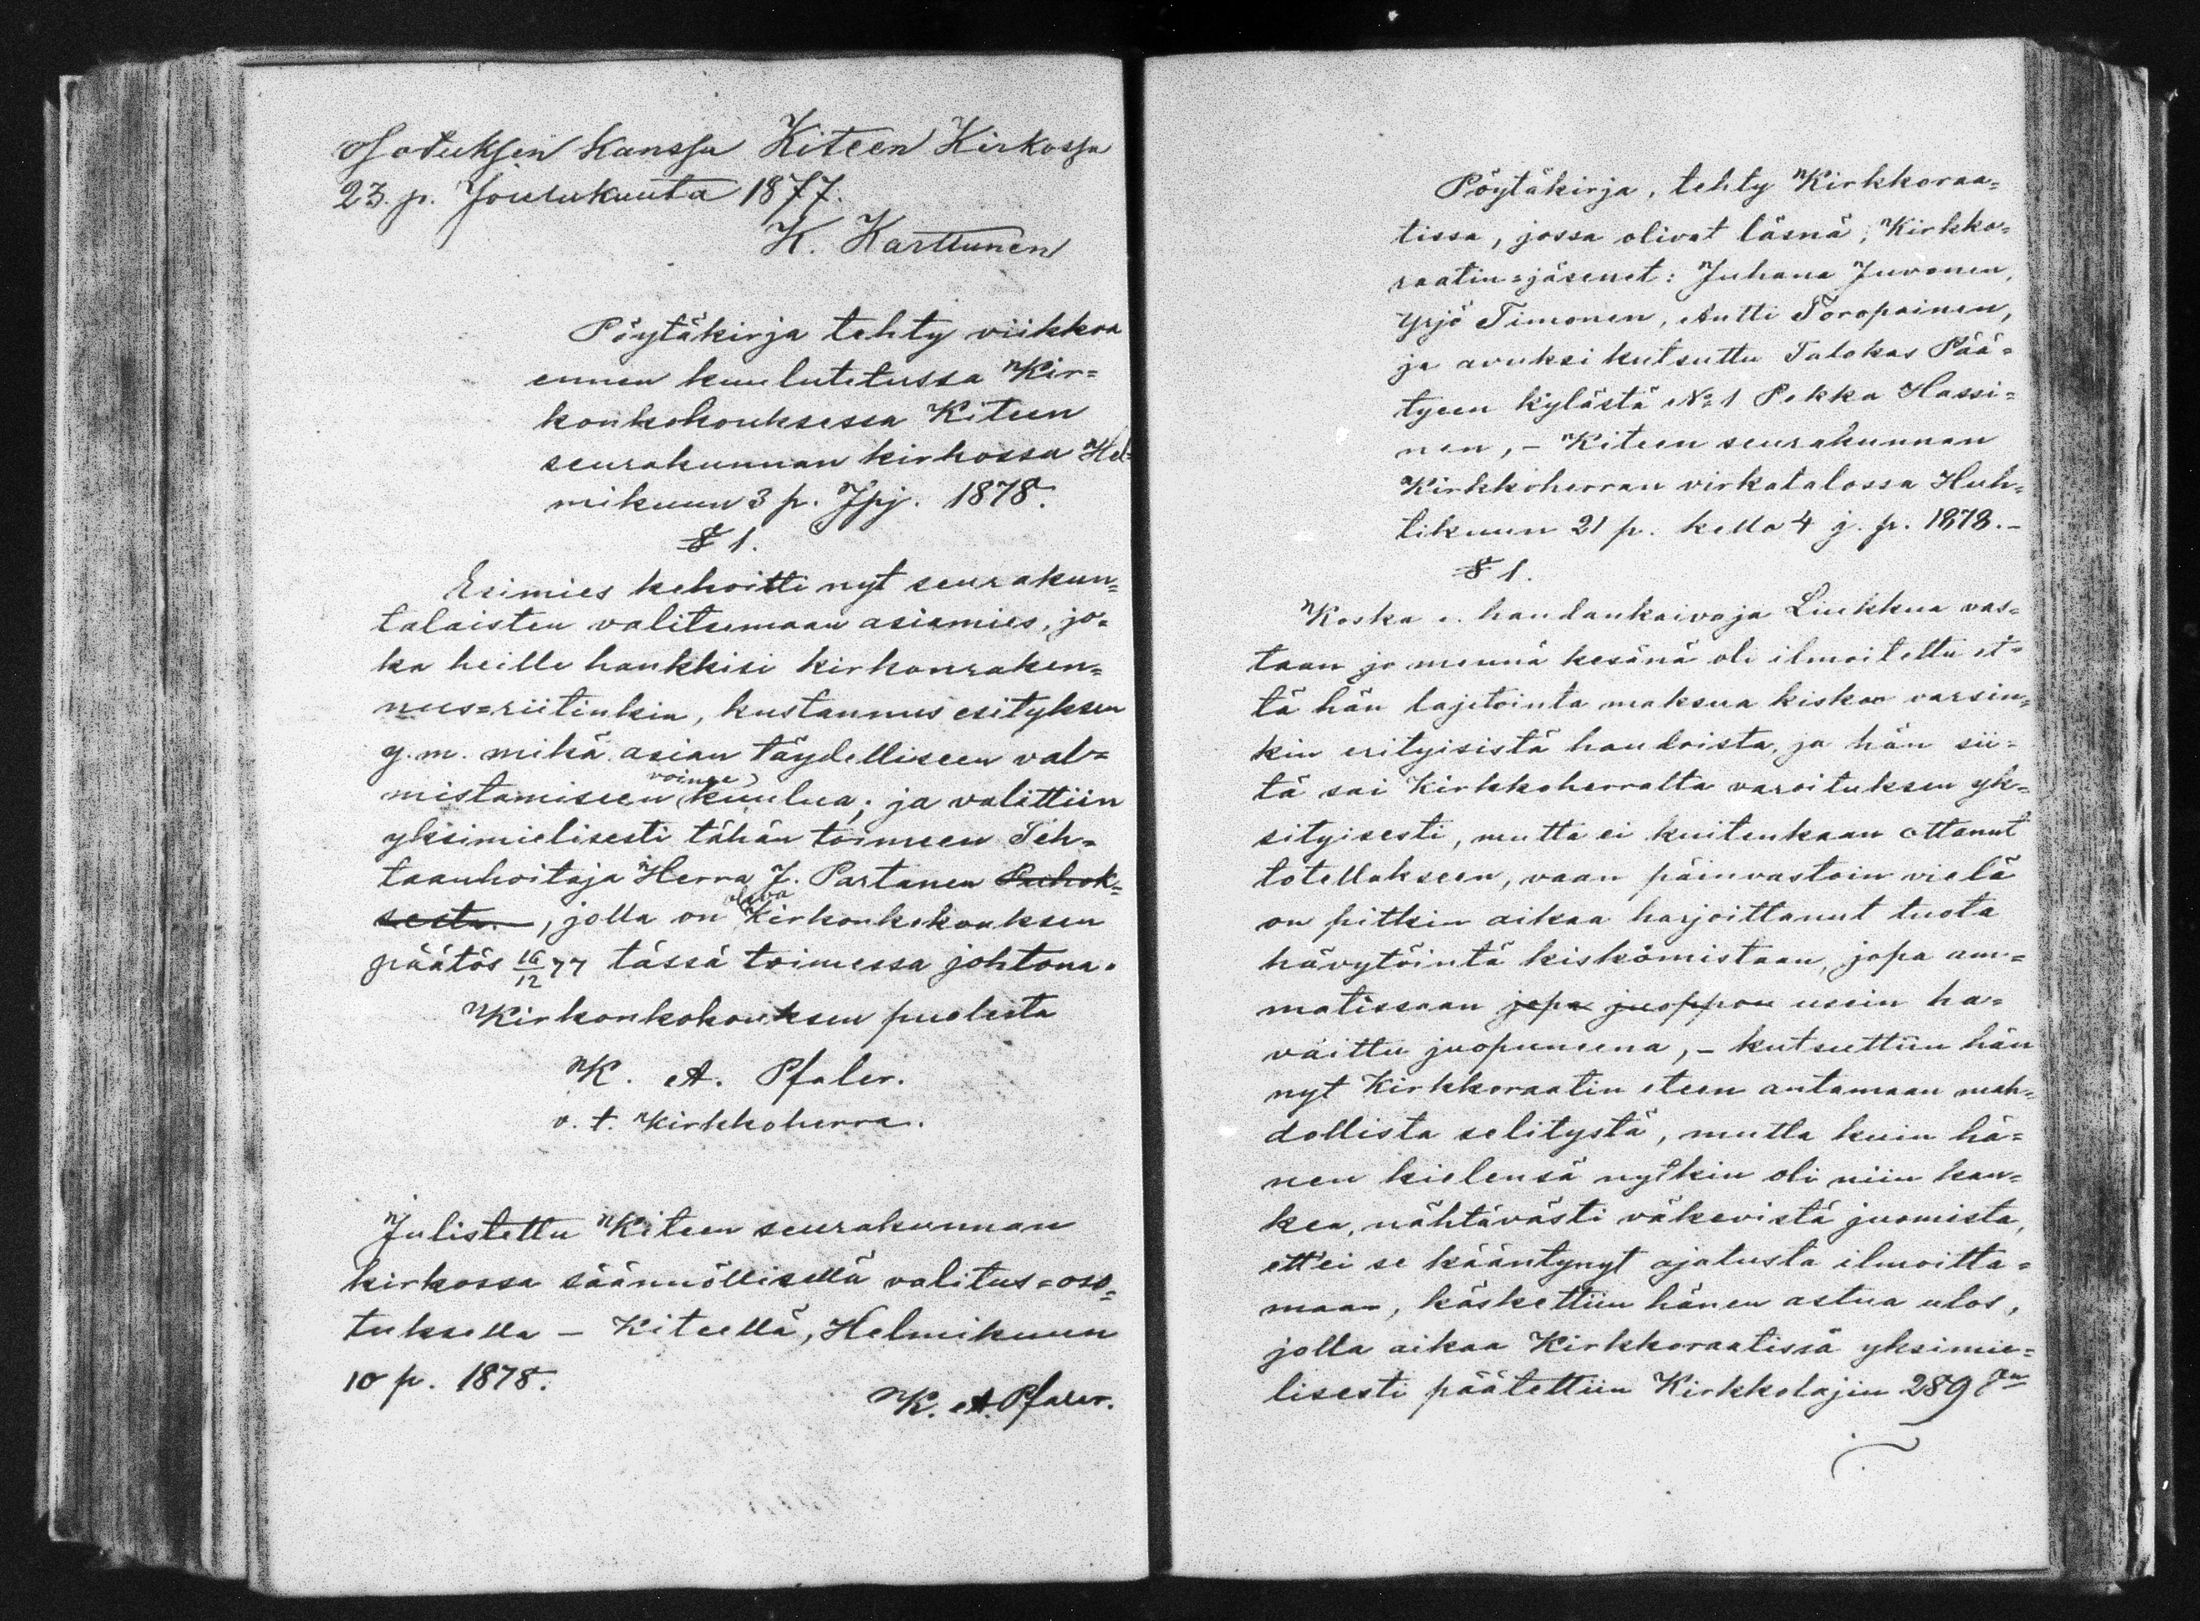 osotuksen kanssa Kiteen Kirkossa
23. p. Joulukuuta 1877.
K. Karttunen
Pöytäkirja tehty viikkoa
ennen kuulutetussa Kir=
konkokouksessa Kiteen
seurakunnan kirkossa Hel=
mikuun 3 p. Jpj. 1878.
§ 1.
Esimies kehoitti nyt seurakun=
talaisten valitsemaan asiamies, jo=
ka heille hankkisi kirkonraken=
nus=riitinkin, kustannus esityksen
y.m. mikä asian täydelliseen val=
mistamiseen voinee kuulua; ja valittiin
yksimielisesti tähän toimeen Teh=
taanhoitaja Herra J. Partanen Puhok=
sesta, jolla on oleva Kirkonkokouksen
päätös 16/12 77 tässä toimessa johtona.
Kirkonkokouksen puolesta
K. A. Pfaler.
v. t. Kirkkoherra.
Julistettu Kiteen seurakunnan
kirkossa säännöllisellä valitus=oso=
tuksella – Kiteellä, Helmikuun
10 p. 1878.
K. A. Pfaler.
Pöytäkirja, tehty Kirkkoraa=
tissa, jossa olivat läsnä, Kirkko=
raatin=jäsenet: Juhana Juvonen,
Yrjö Timonen, Antti Toropainen,
ja avuksi kutsuttu Talokas Pää=
tyeen kylästä No 1 Pekka Hassi=
nen, – Kiteen seurakunnan
Kirkkoherran virkatalossa Huh=
tikuun 21 p. kello 4 j. p. 1878. –
§ 1.
Koska haudankaivaja Liukkua vas=
taan jo mennä kesänä oli ilmoitettu et=
tä hän lajitointa maksua kiskoo varsin=
kin erityisistä haudoista, ja hän sii=
tä sai Kirkkoherralta varoituksen yk=
sityisesti, mutta ei kuitenkaan ottanut
totellakseen, vaan päinvastoin vielä
on pitkin aikaa harjoittanut tuota
hävytöintä kiskomistaan, jopa am=
matissaan jopa juoppon usein ha=
vaittu juopuneena, – kutsuttiin hän
nyt Kirkkoraatin eteen antamaan mah=
dollista selitystä, mutta kuin hä=
nen kielensä nytkin oli niin kan=
kea, nähtävästi väkevistä juomista,
ett'ei se kääntynyt ajatusta ilmoitta=
maan, käskettiin hänen astua ulos,
jolla aikaa Kirkkoraatissa yksimie=
lisesti päätettiin Kirkkolajin 289 §:n